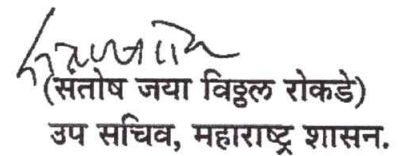 (संतोष जया विठ्ठल रोकडे)
उप सचिव, महाराष्ट्र शासन.